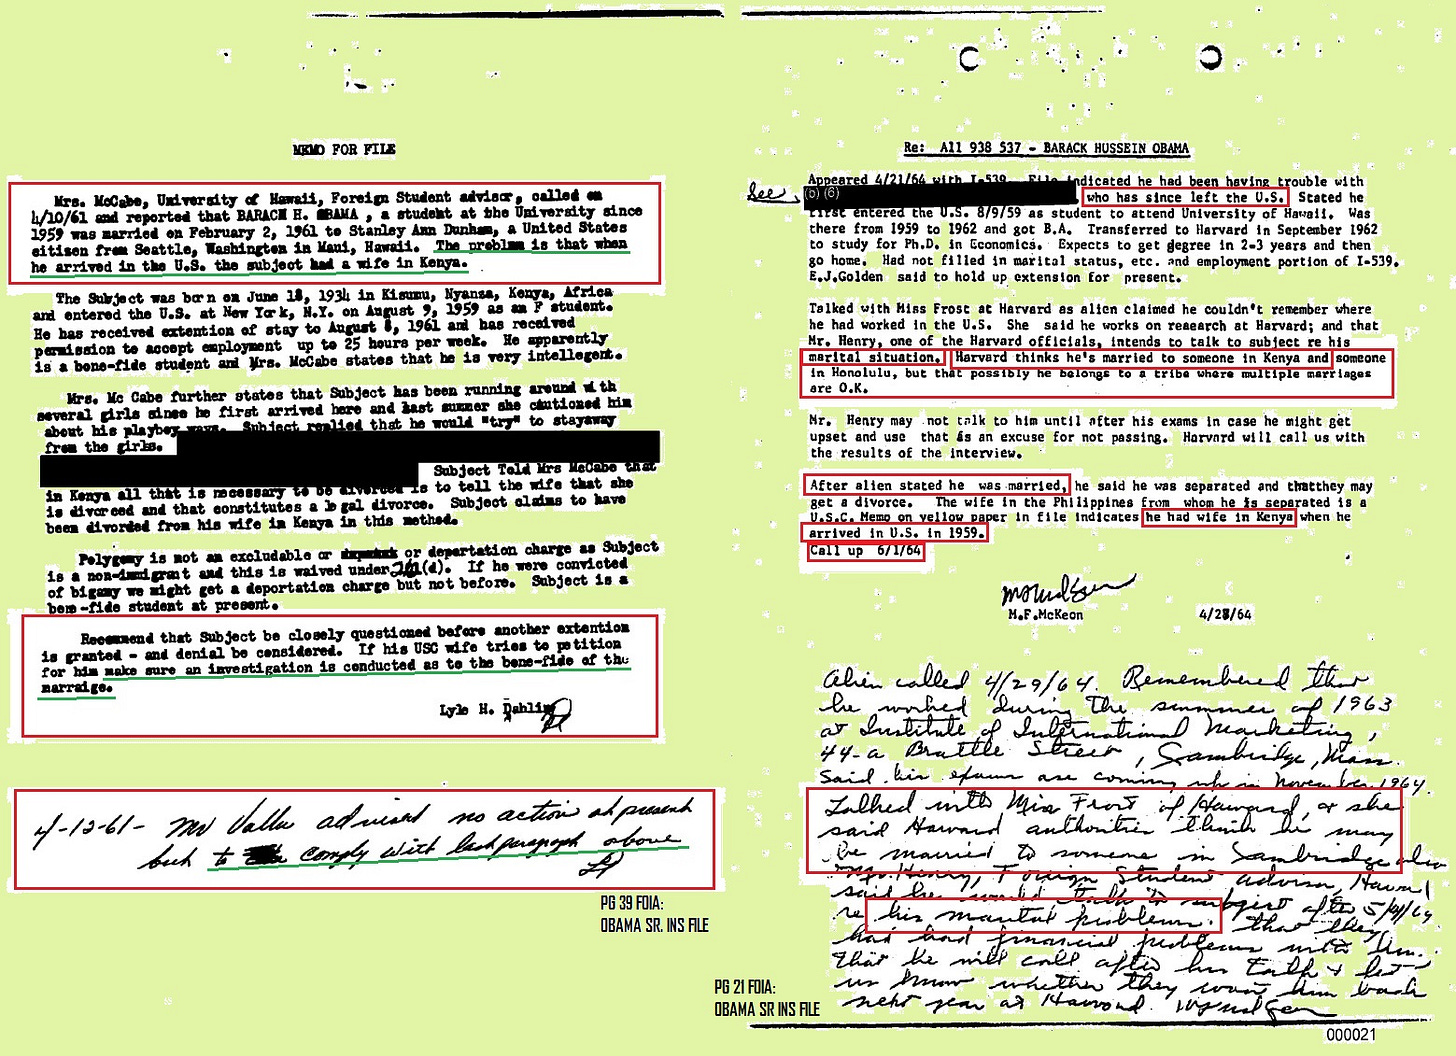 MEMO FOR FILE
Mrs. McCabe, University of Hawaii, Foreign Student advisor, called on
4/10/61 and reported that BARACK H. OBAMA , a student at the University since
1959 was married on February 2, 1961 to Stanley Ann Dunham, a United States
citizen from Seattle, Washington in Maui, Hawaii. The problem is that when
he arrived in the U.S. the subject had a wife in Kenya.
The Subject was born on June 18, 1934 in Kisumu, Nyanza, Kenya, Africa
and entered the U.S. at New York, N.Y. on August 9, 1959 as an F student.
He has received extention of stay to August 8, 1961 and has received
permission to accept employment up to 25 hours per week. He apparently
is a bone-fide student and Mrs. McCabe states that he is very intellegent.
Mrs. Mc Cabe further states that Subject has been running around with
several girls since he first arrived here and last summer she cautioned him
about his playboy ways. Subject replied that he would "try" to stayaway
from the girls.
Subject Told Mrs McCabe that
in Kenya all that is necessary to be divorced is to tell the wife that she
is divorced and that constitutes a legal divorce. Subject claims to have
been divorded from his wife in Kenya in this method.
Polygemy is not an excludable or or deportation charge as Subject
is a non-immigrant and this is waived under (d). If he were convicted
of bigamy we might get a deportation charge but not before. Subject is a
bone-fide student at present.
Recommend that Subject be closely questioned before another extention
is granted - and denial be considered. If his USC wife tries to petition
for him make sure an investigation is conducted as to the bone-fide of the
marraige.
Lyle H. Dahlin
4-12-61- Mr advised no action at present
but to comply with last paragraph above
PG 39 FOIA:
OBAMA SR. INS FILE
Re: A11 938 537 - BARACK HUSSEIN OBAMA
See
(b) (6)
Appeared 4/21/64 with I-539. File indicated he had been having trouble with
who has since left the U.S. Stated he
first entered the U.S. 8/9/59 as student to attend University of Hawaii. Was
there from 1959 to 1962 and got B.A. Transferred to Harvard in September 1962
to study for Ph.D. in Economics. Expects to get degree in 2-3 years and then
go home. Had not filled in marital status, etc. and employment portion of I-539.
E.J.Golden said to hold up extension for present.
Talked with Miss Frost at Harvard as alien claimed he couldn't remember where
he had worked in the U.S. She said he works on research at Harvard; and that
Mr. Henry, one of the Harvard officials, intends to talk to subject re his
marital situation. Harvard thinks he's married to someone in Kenya and someone
in Honolulu, but that possibly he belongs to a tribe where multiple marriages
are O.K.
Mr. Henry may not talk to him until after his exams in case he might get
upset and use that as an excuse for not passing. Harvard will call us with
the results of the interview.
After alien stated he was married, he said he was separated and thatthey may
get a divorce. The wife in the Philippines from whom he is separated is a
U.S.C. Memo on yellow paper in file indicates he had wife in Kenya when he
arrived in U.S. in 1959.
Call up 6/1/64
M.F.McKeon 4/28/64
Alien called 4/29/64. Remembered that
he worked during the summer of 1963
at Institute of International Marketing,
44-a Brattle Street, Cambridge, Mass.
Said his exams are coming up in November 1964.
Talked with Miss Frost of Harvard, & she
said Harvard authorities think he may
be married to someone in Cambridge also
Mr. Henry, Foreign Student advisor, Harvard
said he would talk to subject after 5/
re his marital problems. That they
had had financial problems with him.
That he will call after his talk & let
us know whether they want him back
next year at Harvard.
PG 21 FOIA:
OBAMA SR INS FILE
000021